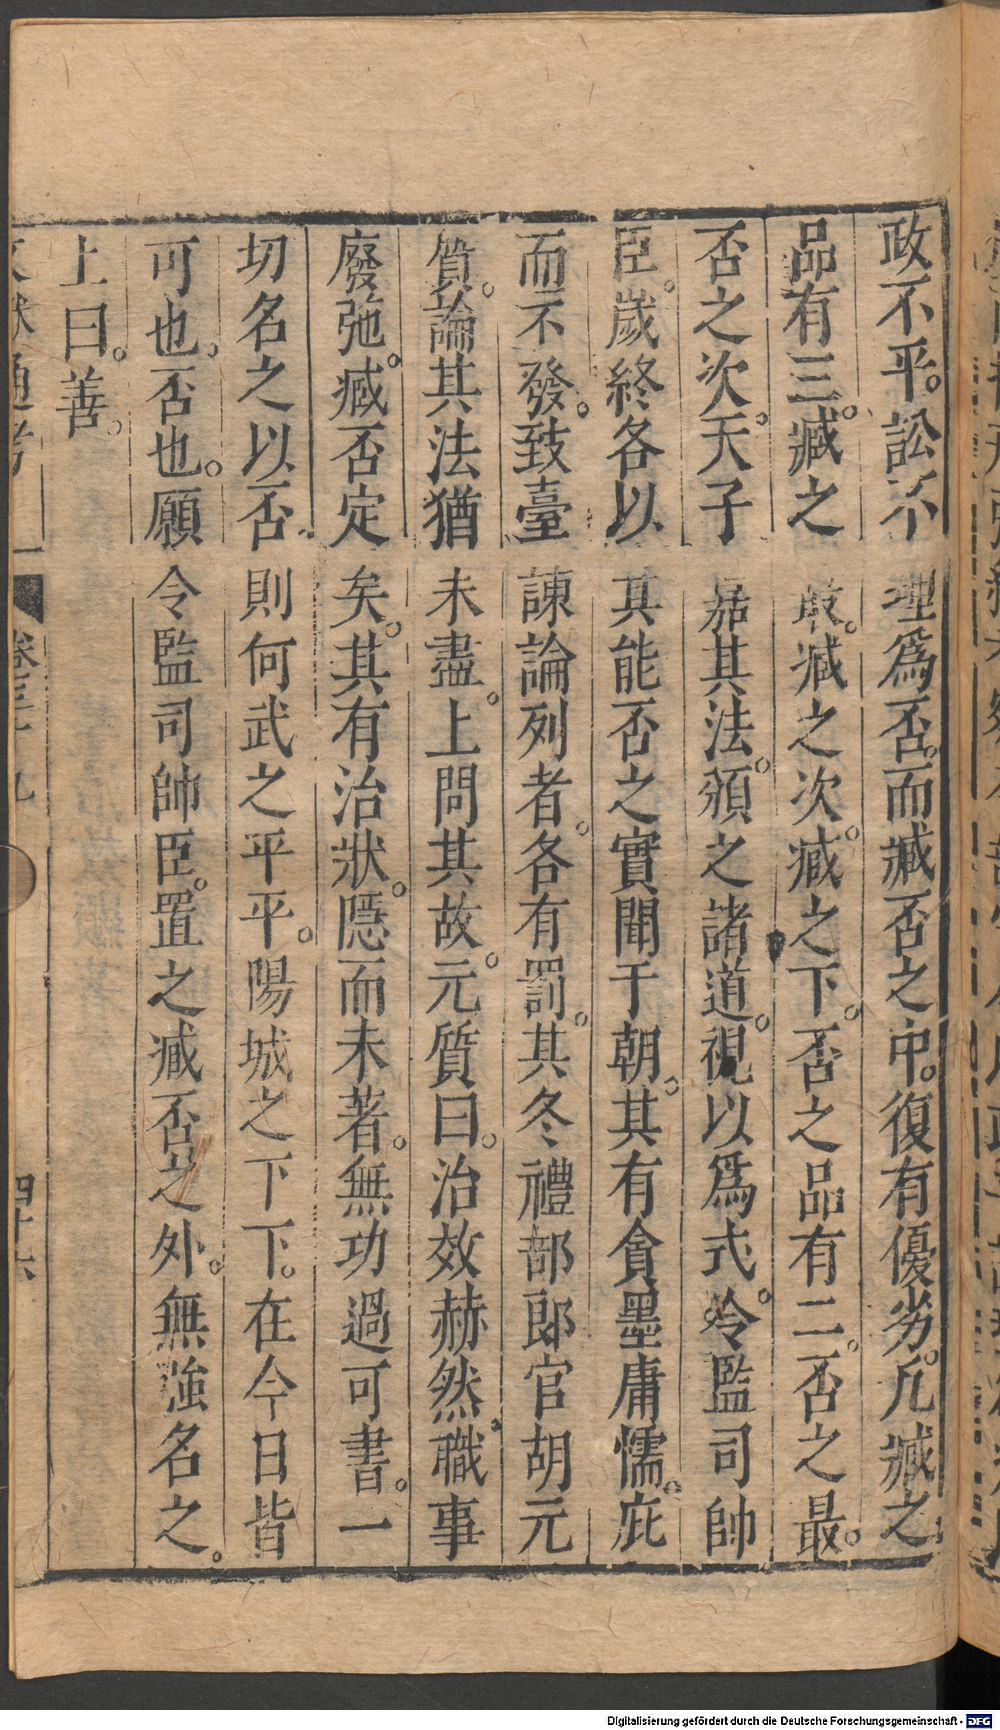 政不平。訟不理爲否。而臧否之中。復有優劣。凡臧之
品有三。臧之最。臧之次。臧之下。否之品有二。否之最。
否之次。天子是其法。頒之諸道。視以爲式。令監司帥
臣。歲終各以其能否之實聞于朝。其有貪墨庸懦。庇
而不發。致臺諫論列者。各有罰。其冬禮部郎官胡元
質。論其法猶未盡。上問其故。元質曰。治效赫然。職事
廢弛。臧否定矣。其有治狀。隱而未著。無功過可書。一
切名之以否。則何武之平平。陽城之下下。在今日皆
可也。否也。願令監司帥臣。置之臧否之外。無強名之。
上曰。善。
文獻通考 卷三十九 四十六
Digitalisierung gefördert durch die Deutsche Forschungsgemeinschaft - DFG